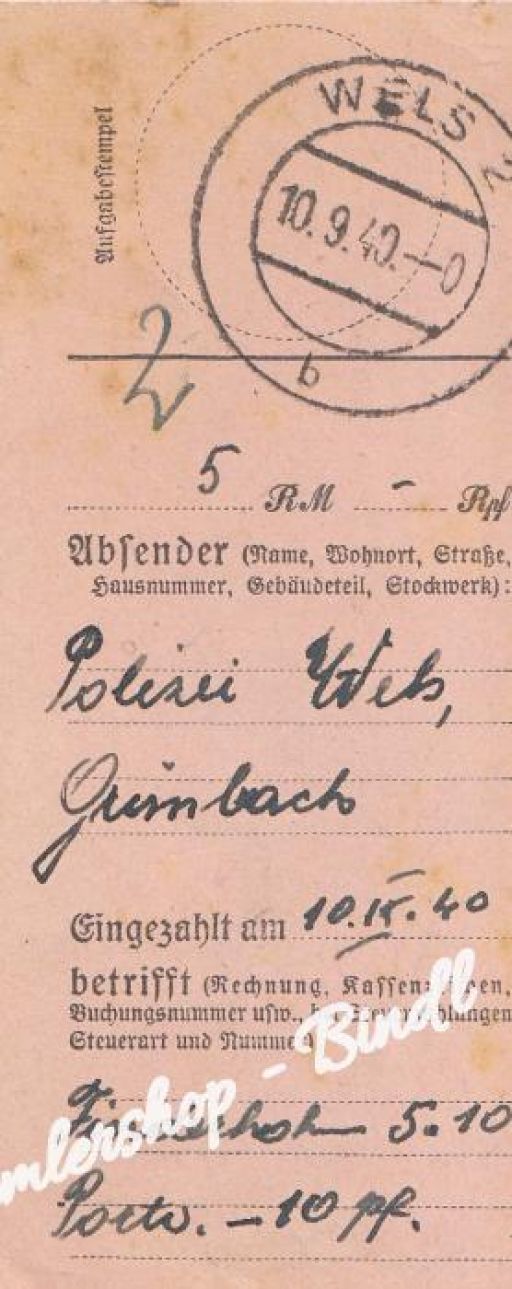 Aufgabestempel
WELS 2
10.9.40.—0
b
5 RM - Rpf
Absender (Name, Wohnort, Straße,
Hausnummer, Gebäudeteil, Stockwerk):
Polizei Wels,
Grünbach
Eingezahlt am 10.IX.40
betrifft (Rechnung,
Buchungsnummer usw.,
Steuerart und Nummer)
5.10
Porto. - 10 pf.
mlershop - Bindl